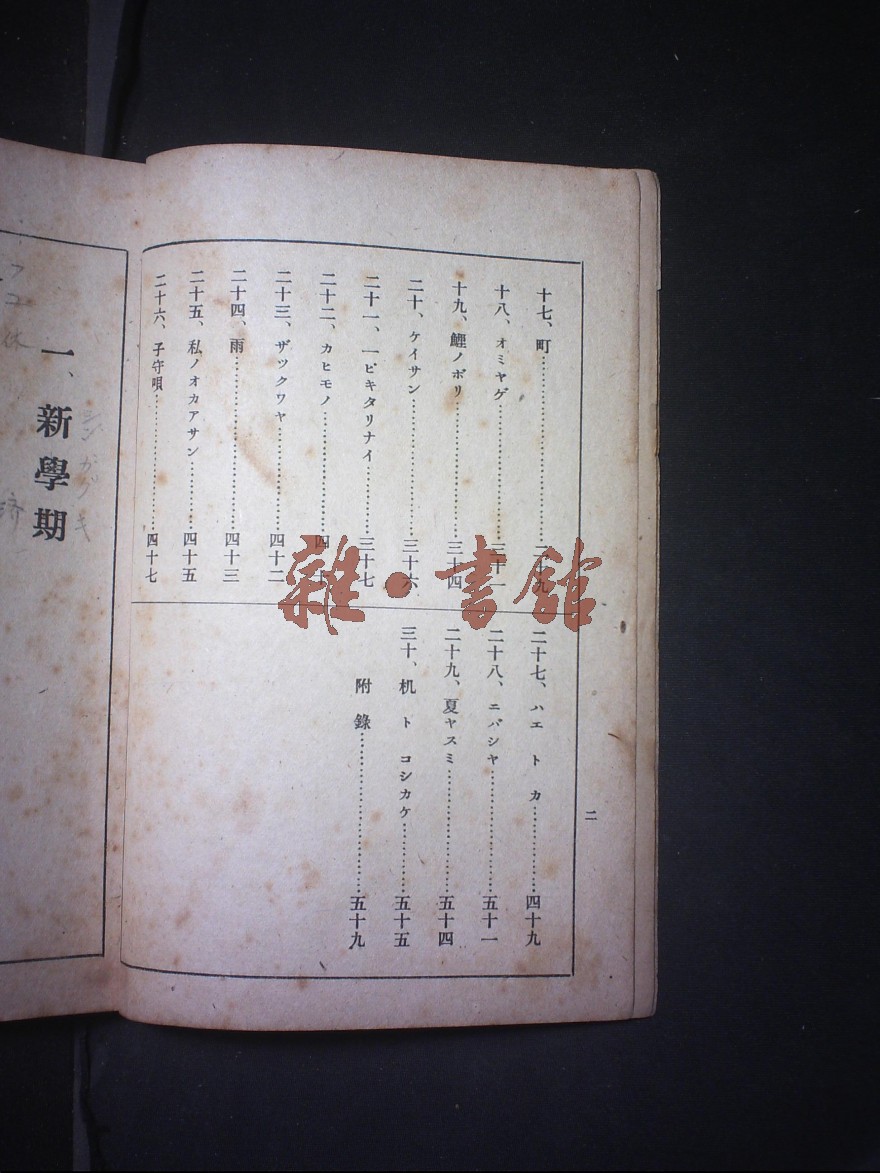 十七、町……二十九
十八、オミヤゲ……三十一
十九、鯉ノボリ……三十四
二十、ケイサン……三十六
二十一、一ピキタリナイ……三十七
二十二、カヒモノ……四十
二十三、ザックワヤ……四十二
二十四、雨……四十三
二十五、私ノオカアサン……四十五
二十六、子守唄……四十七
二十七、ハエ ト カ……四十九
二十八、ニバシヤ……五十一
二十九、夏ヤスミ……五十四
三十、机 ト コシカケ……五十五
附錄……五十九
二
一、新學期
雜·書館